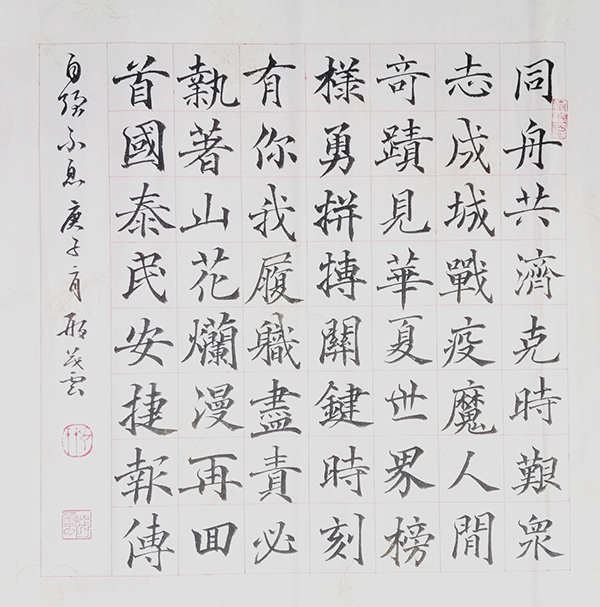 同舟共濟克時艱眾
志成城戰疫魔人間
奇蹟見華夏世界榜
樣勇拼搏關鍵時刻
有你我履職盡責必
執著山花爛漫再回
首國泰民安捷報傳
自強不息 庚子 茂雲